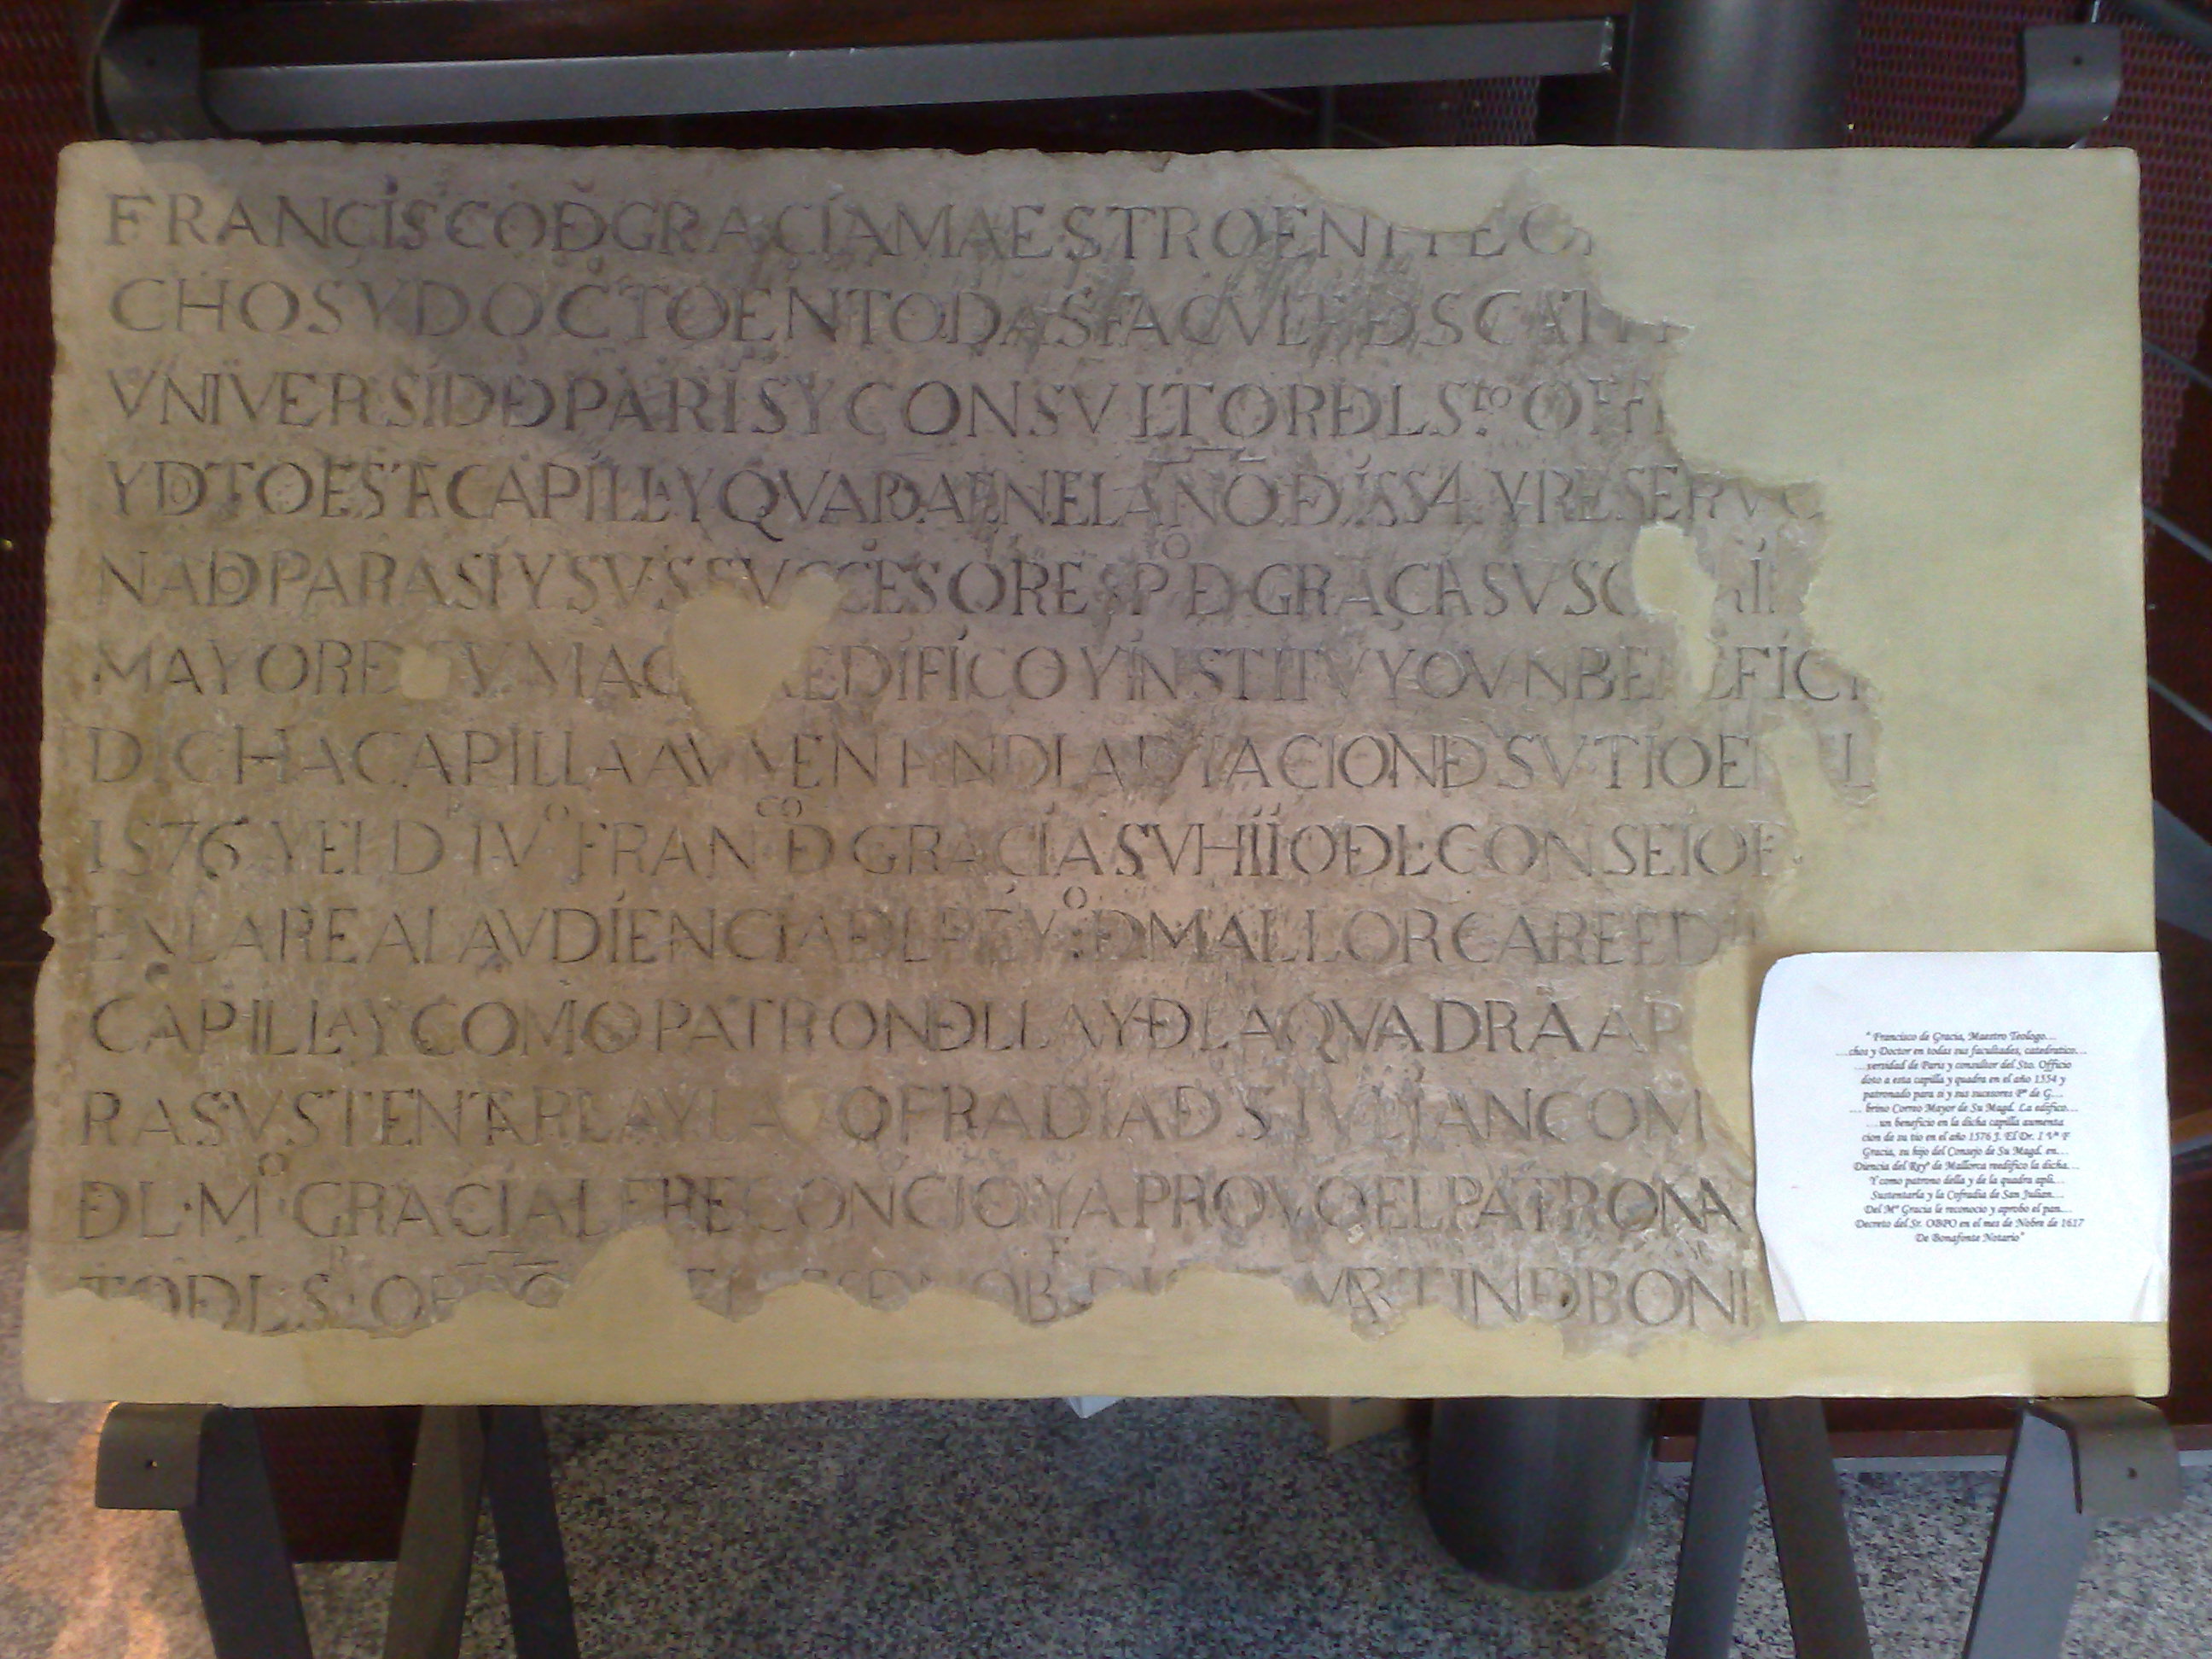 FRANCISCOĐGRACÍAMAESTROEN
CHOSYDOCTOENTODASFACVLT
VNIVERSIDĐPARÍSYCONSVLTORĐLSᵗᵒOFFI
YDTOESTACAPILLYQVADAENELAÑOĐ1554YRESERVO
NADPARASIYSVSSVCCESORESPºĐGRACIASVSO
MAYORE MAG EDÍFÍCOYÍNSTITVYOVNBE EFÍCI
DICHACAPILLA ACIONĐSVTIOEN L
1576 YELD IVº FRANCOĐGRACÍASVHIIOĐLCONSEIOĐ
ENLAREALAVDÍENCIAĐLREYºĐMALLORCAREEDI
CAPILLAYCOMOPATRONĐLLAYĐLAQVADRAAP
RASVSTENTARLAYLA OFRADIADS IVLIANCOM
ĐL·Mº GRACIALERECONCIOYAPROVOELPATRONA
TOĐLSʳ OB ARTINĐBONI
" Francisco de Gracia, Maestro Teologo…
…chos y Doctor en todas sus facultades, catedratico…
…versidad de Paris y consultor del Sto. Officio
doto a esta capilla y quadra en el año 1554 y
patronado para si y sus sucesores Pº de G…
… brino Correo Mayor de Su Magd. La edifico…
…un beneficio en la dicha capilla aumenta
cion de su tio en el año 1576 J. El Dr. I Vº F
Gracia, su hijo del Consejo de Su Magd. en…
Diencia del Reyº de Mallorca reedifico la dicha…
Y como patrono della y de la quadra apli…
Sustentarla y la Cofradia de San Julian…
Del Mº Gracia le reconocio y aprobo el pan…
Decreto del Sr. OBPO en el mes de Nobre de 1617
De Bonafonte Notario"